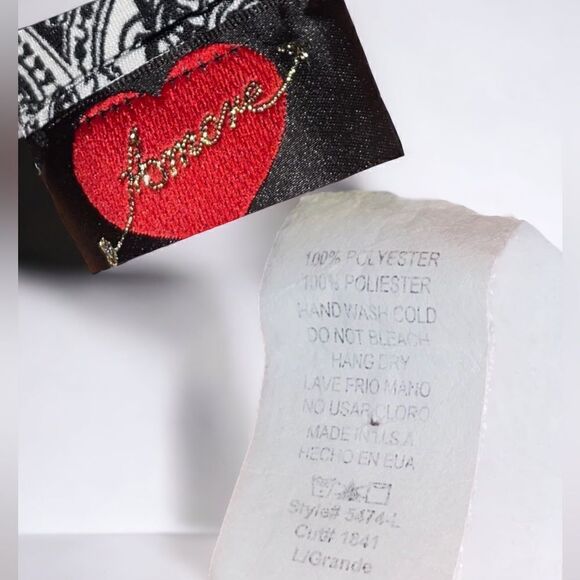 Amore
100% POLYESTER
100% POLIESTER
HAND WASH COLD
DO NOT BLEACH
HANG DRY
LAVE FRIO MANO
NO USAR CLORO
MADE IN U.S.A
HECHO EN EUA
Style# 5474-L
Cut# 1841
L/Grande